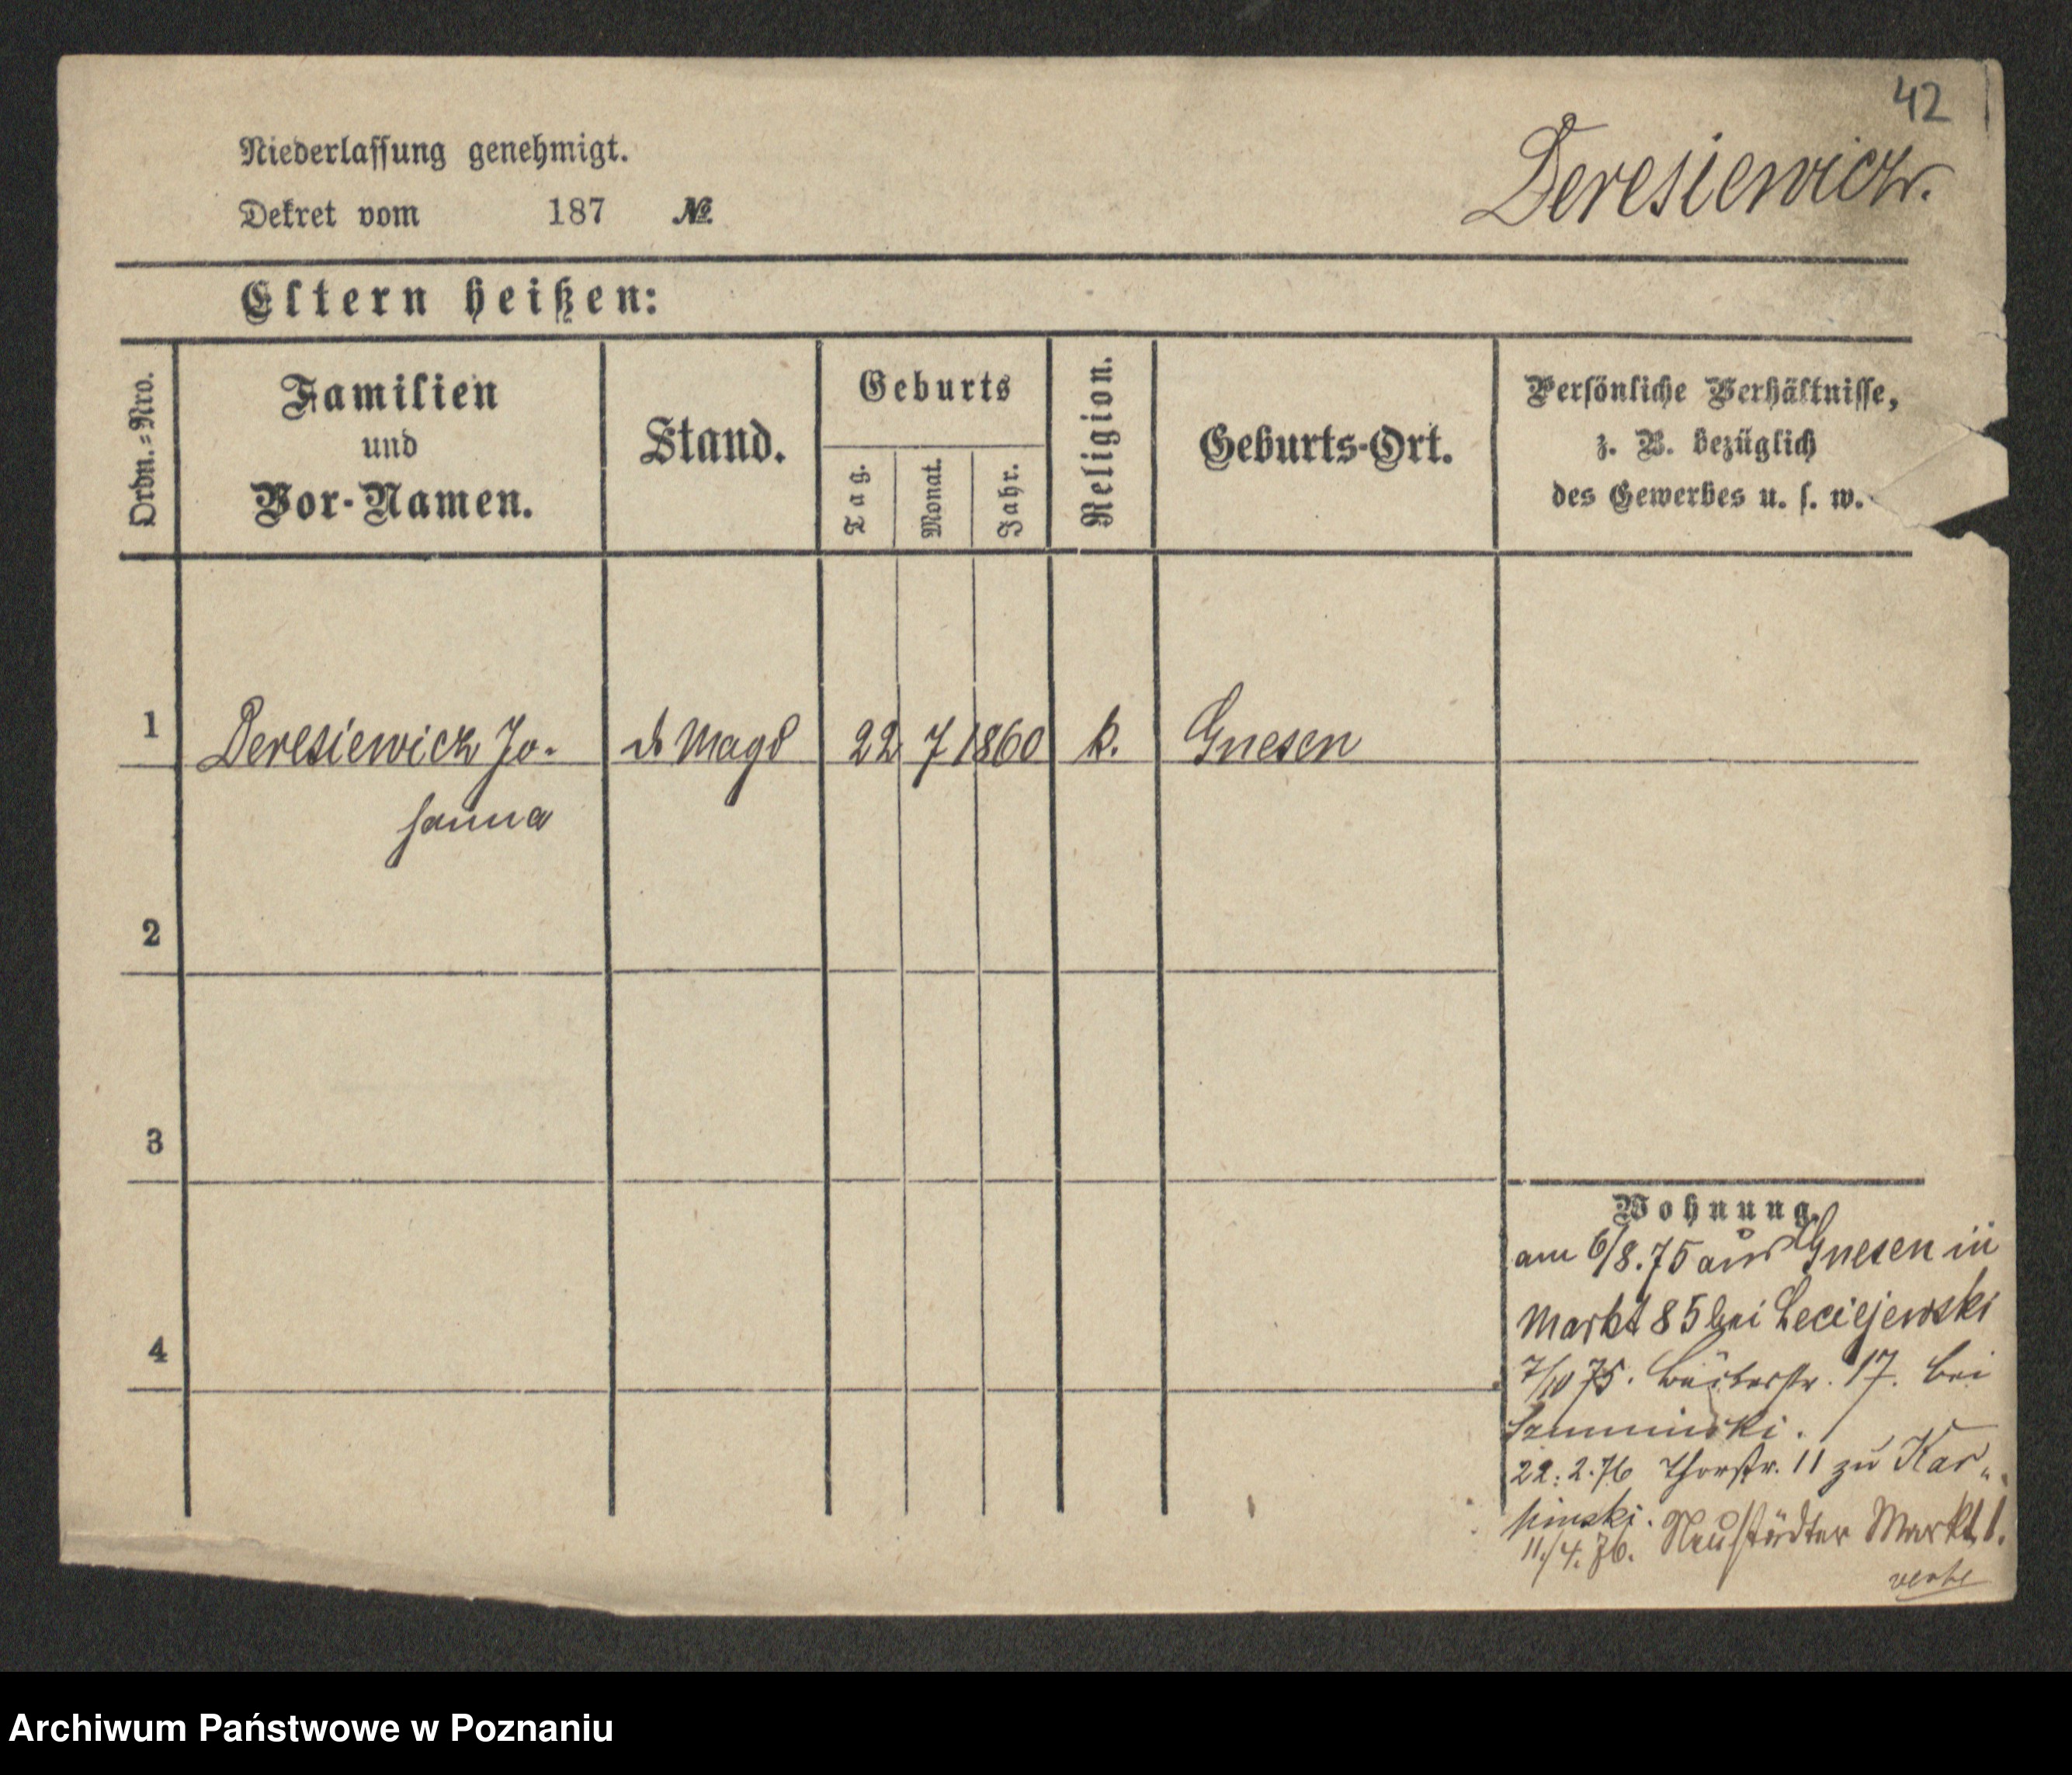 42
Niederlassung genehmigt.
Deresiewicz.
Dekret vom 187 №
Eltern heißen:
Ordn.=Nro.
Familien
und
Vor-Namen.
Stand.
Geburts
Tag.
Monat.
Jahr.
Religion.
Geburts-Ort.
Persönliche Verhältnisse,
z. B. bezüglich
des Gewerbes u. s. w.
1 Deresiewicz Jo- Magd 22 7 1860 k. Gnesen
hanna
2
3
4
Wohnung.
am 6/8.75 aus Gnesen in
Markt 85 bei Leciejewski
7/10 75. Bäckerstr. 17. bei
Szuminski.
22.2.76 Thorstr. 11 zu Kar-
pinski.
11./4.76. Neustädter Markt 1.
verte
Archiwum Państwowe w Poznaniu